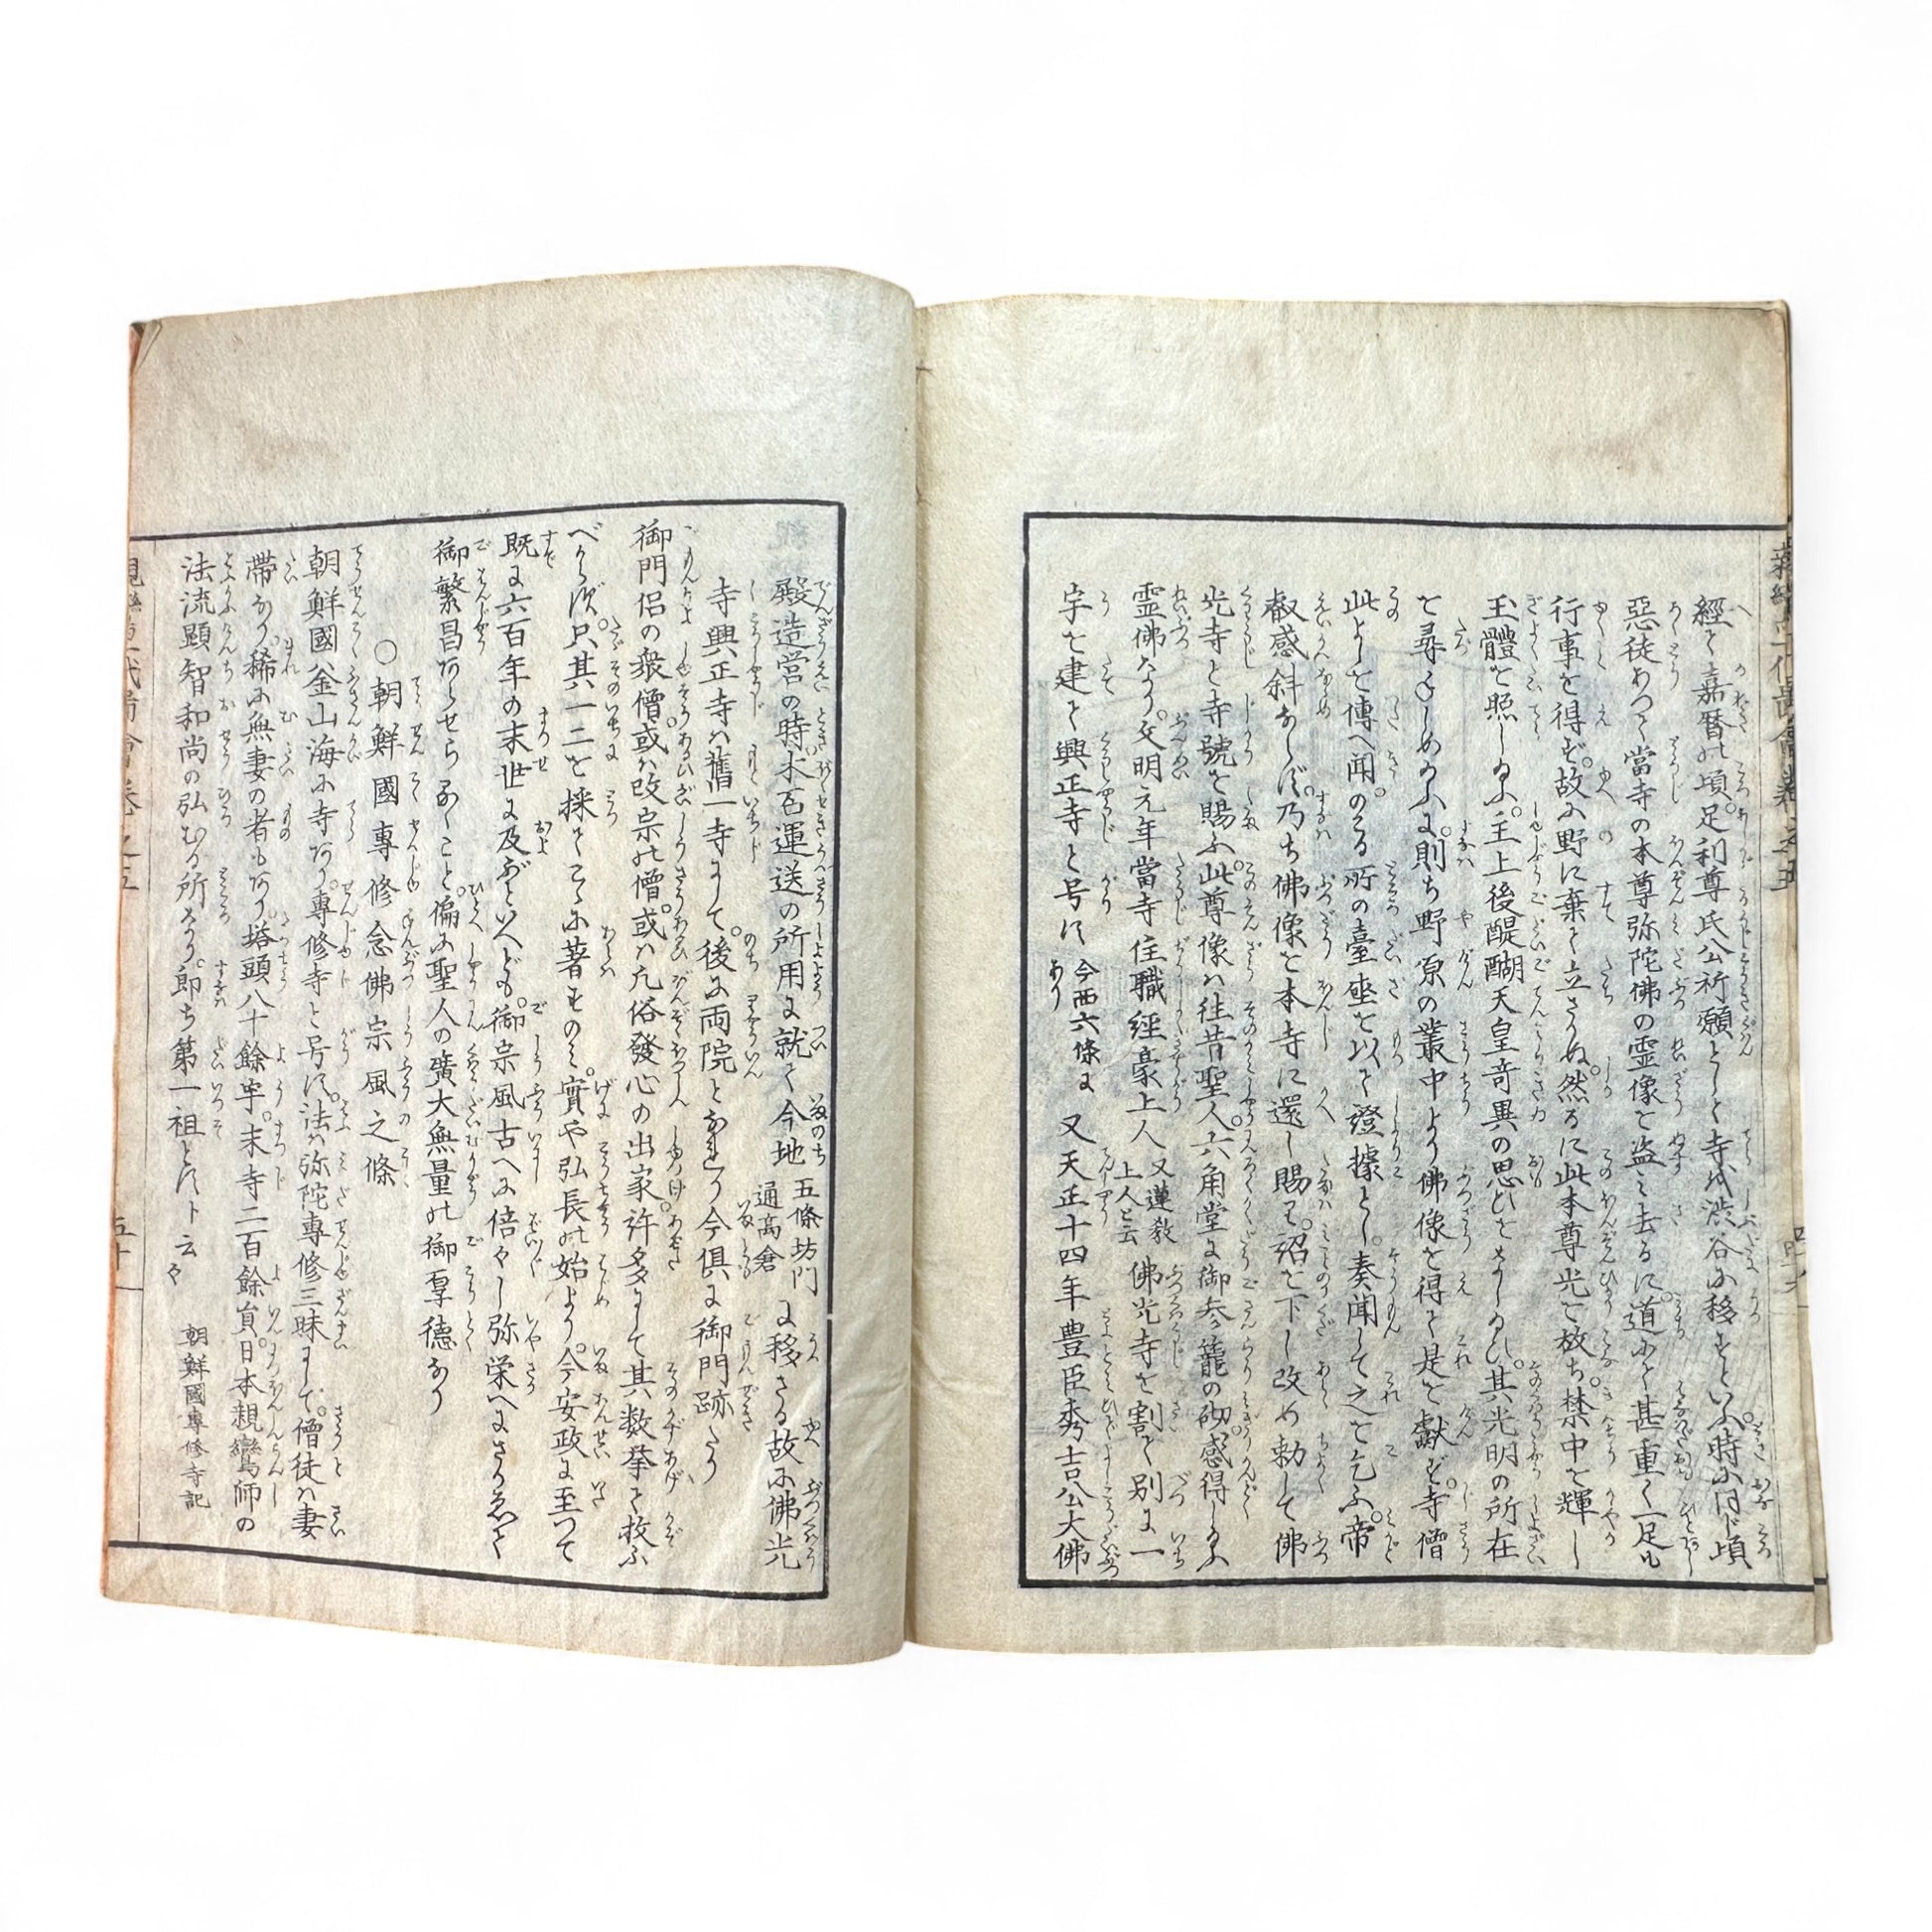 經て嘉暦の頃。足利尊氏公祈願として寺を渋谷に移すといふ。時に同じ頃
惡徒あつて當寺の本尊弥陀佛の霊像を盗み去るに。道にて甚重く一足も
行事を得ず。故に野に棄て立さりぬ。然るに此本尊光を放ち。禁中を輝し
玉體を照し給ふ。主上後醍醐天皇奇異の思ひをなし給ひ。其光明の所在
を尋ねしめ給ふに。則ち野原の叢中より佛像を得て是を獻ず。寺僧
此よしを傳へ聞。のこる所の臺座を以て證據とし。奏聞して之を乞ふ。帝
叡感斜ならず。乃ち佛像を本寺に還し賜ひ。詔を下し改め勅して佛
光寺と寺號を賜ふ。此尊像は往昔聖人。六角堂に御参籠の砌。感得し給ふ
霊佛なり。文明元年當寺住職經豪上人 又蓮教上人と云 佛光寺を割て別に一
宇を建て興正寺と号す 今西六條にあり 又天正十四年豊臣秀吉公大佛
殿造営の時。木石運送の所用に就て今地 五條坊門通高倉 に移さる故に佛光
寺興正寺は舊一寺にして。後に両院となれり。今倶に御門跡たり
御門侶の衆僧或は改宗の僧。或は凡俗發心の出家。許多にして其数挙て救ふ
べからず。只其一二を採てこゝに著すのみ。實や弘長の始より。今安政に至つて
既に六百年の末世に及ぶといへども。御宗風古へに倍々し弥栄へにさかゑて
御繁昌ならせらるゝこと。偏に聖人の廣大無量の御厚德なり
○朝鮮國專修念佛宗風之條
朝鮮國釜山海に寺あり。專修寺と号す。法は弥陀專修三昧にして。僧徒は妻
帯なり。稀に無妻の者もあり。塔頭八十餘宇。末寺二百餘負。日本親鸞師の
法流顕智和尚の弘むる所なり。即ち第一祖とすト云々 朝鮮國專修寺記
五十一